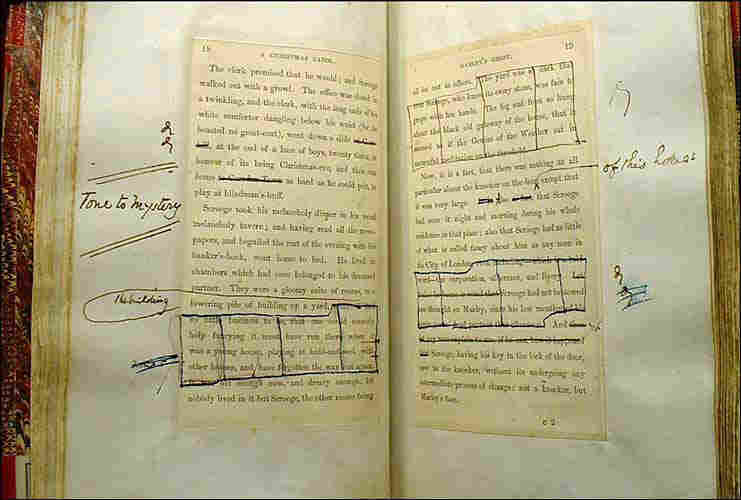 18
A CHRISTMAS CAROL.
The clerk promised that he would; and Scrooge
walked out with a growl. The office was closed in
a twinkling, and the clerk, with the long ends of his
white comforter dangling below his waist (for he
boasted no great-coat), went down a slide
at the end of a lane of boys, twenty times, in
honour of its being Christmas-eve, and then ran
home as hard as he could pelt, to
play at blindman's-buff.
Tone to Mystery
Scrooge took his melancholy dinner in his usual
melancholy tavern; and having read all the news-
papers, and beguiled the rest of the evening with his
banker's-book, went home to bed. He lived in
chambers which had once belonged to his deceased
partner. They were a gloomy suite of rooms, in a
The building
lowering pile of building up a yard,
business to be, that one could scarcely
help fancying it must have run there when it
was a young house, playing at hide-and-seek with
other houses, and have forgotten the way out again.
old enough now, and dreary enough, for
nobody lived in it but Scrooge, the other rooms being
MARLEY'S GHOST.
19
all let out as offices. The yard was so dark that
even Scrooge, who knew its every stone, was fain to
grope with his hands. The fog and frost so hung
about the black old gateway of the house, that it
seemed as if the Genius of the Weather sat in
mournful meditation on the threshold.
Now, it is a fact, that there was nothing at all
particular about the knocker on the door except that
of this house
it was very large. that Scrooge
had seen it night and morning during his whole
residence in that place; also that Scrooge had as little
of what is called fancy about him as any man in
the City of London,
word—the corporation, aldermen, and livery. Let
that Scrooge had not bestowed
one thought on Marley, since his last mention of his
And
Scrooge, having his key in the lock of the door,
saw in the knocker, without its undergoing any
intermediate process of change: not a knocker, but
Marley's face.
C 2